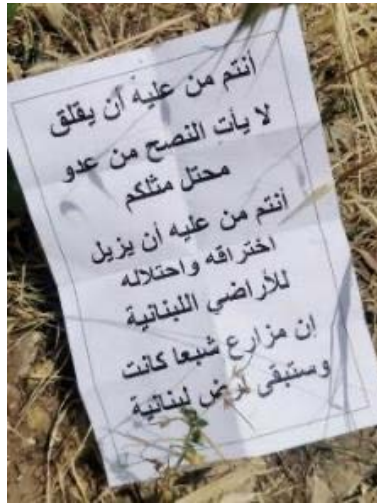 أنتم من عليه أن يقلق
لا يأت النصح من عدو
محتل مثلكم
أنتم من عليه أن يزيل
اختراقه واحتلاله
للأراضي اللبنانية
إن مزارع شبعا كانت
وستبقى أرض لبنانية